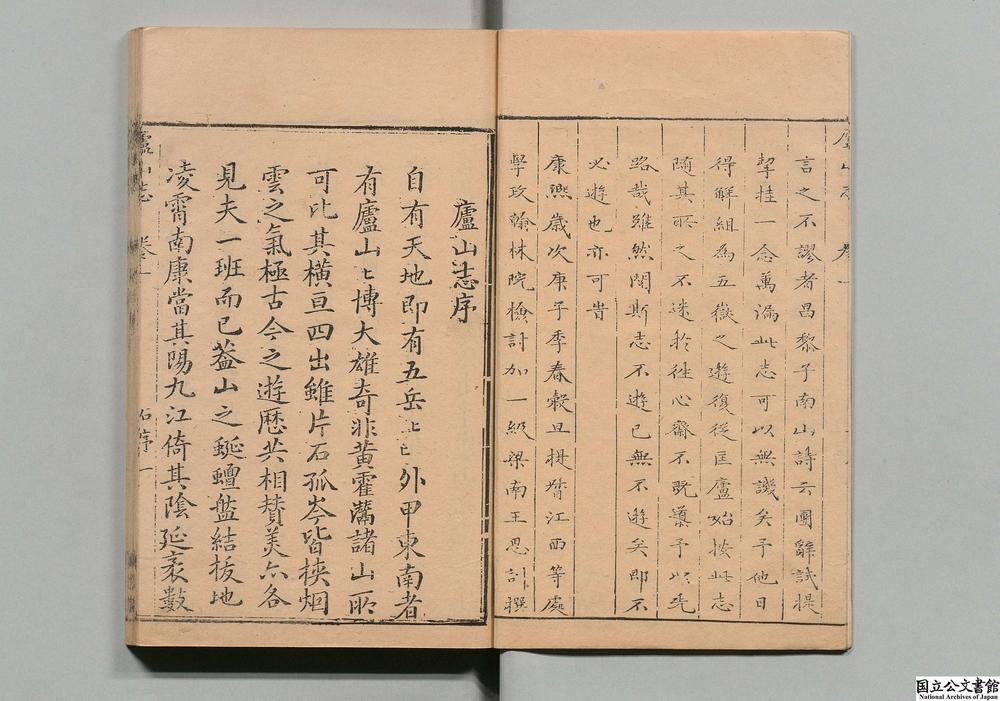 言之不謬者昌黎子南山詩云團辭試提
挈挂一念萬漏此志可以無譏矣予他日
得解組為五嶽之遊復從匡廬始按此志
隨其所之不迷於徃心齋不既導予以先
路哉雖然閱斯志不遊已無不遊矣即不
必遊也亦可
康熙歲次庚子季春糓旦提督江西等處
學政翰林院檢討加一級梁南王思訓撰
廬山志 卷一
廬山志序
自有天地即有五岳五岳之外甲東南者
有廬山廬山博大雄奇非黃霍灊諸山所
可比其橫亘四出雖片石孤岑皆挾烟
雲之氣極古今之遊歷共相賛美亦各
見夫一班而已葢山之蜿蟺盤結拔地
凌霄南康當其陽九江倚其陰延袤數
廬山志 卷一 石序 一
国立公文書館
National Archives of Japan